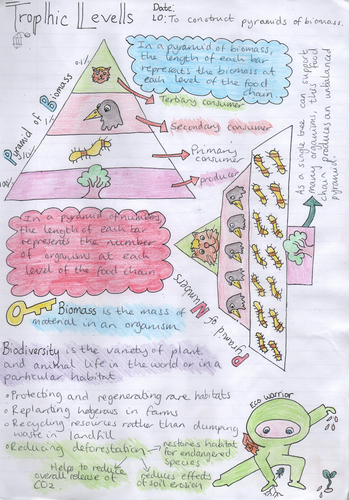 Tropihic Levells
Date:
LO: To construct pyramids of biomass.
Pyramid of Biomass
0.1%
1%
10%
100%
In a pyramid of biomass,
the length of each bar
represents the biomass at
each level of the food
chain
Tertiary consumer
Secondary consumer
Primary
consumer
producer
As a single tree can support
many organisms, this food
chain produces an unbalanced
pyramid.
In a pyramid of numbers,
the length of each bar
represents the number
of organisms at each
level of the food chain
Pyramid of Numbers
Biomass is the mass of
material in an organism
Biodiversity is the variety of plant
and animal life in the world or in a
particular habitat
• Protecting and regenerating rare habitats
• Replanting hedgerows in farms
• Recycling resources rather than dumping
waste in landfill
• Reducing deforestation
restores habitat
for endangered
species
Helps to reduce
overall release of
CO2
reduces effects
of soil erosion
Eco warrior